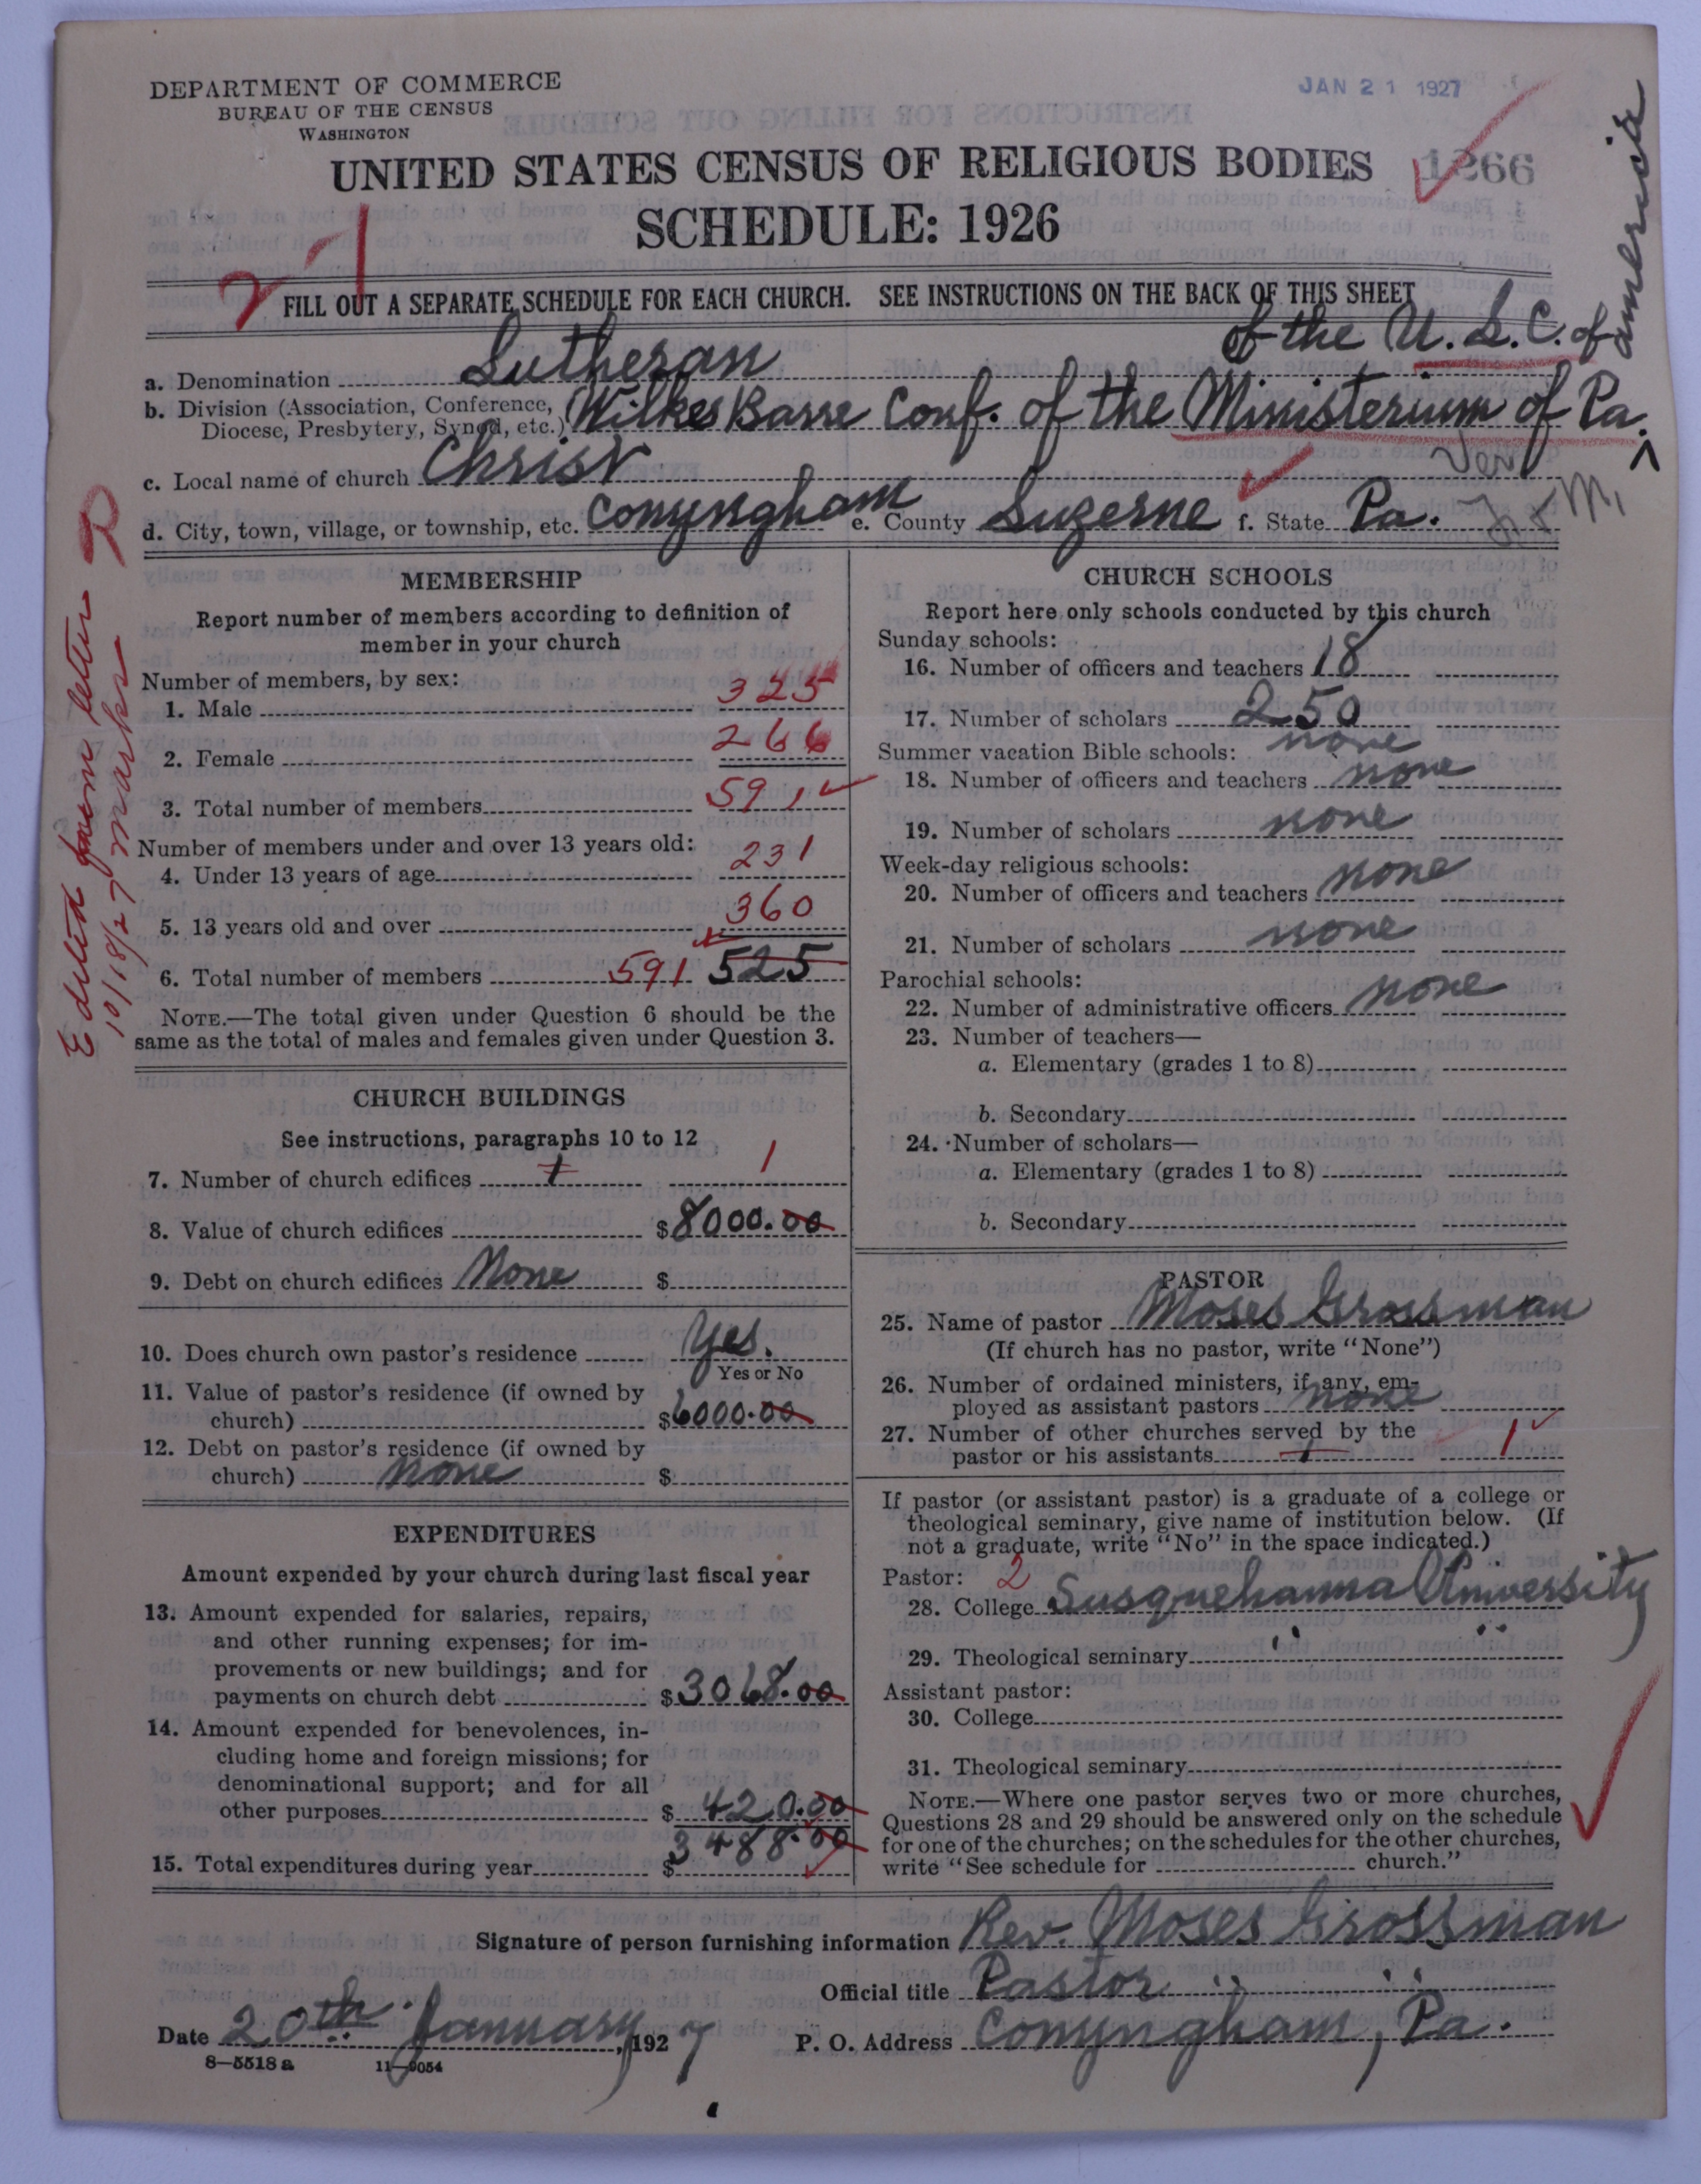 DEPARTMENT OF COMMERCE
BUREAU OF THE CENSUS
WASHINGTON
JAN 21 1927
UNITED STATES CENSUS OF RELIGIOUS BODIES
1266
SCHEDULE: 1926
2-1
FILL OUT A SEPARATE SCHEDULE FOR EACH CHURCH. SEE INSTRUCTIONS ON THE BACK OF THIS SHEET
of the U. L. C. of america
a. Denomination Lutheran
b. Division (Association, Conference, Diocese, Presbytery, Synod, etc.) Wilkes Barre Conf. of the Ministerium of Pa.
c. Local name of church Christ
d. City, town, village, or township, etc. Conyngham e. County Luzerne f. State Pa.
Edited from letter
10/18/27
MEMBERSHIP
Report number of members according to definition of
member in your church
Number of members, by sex:
1. Male 325
2. Female 266
3. Total number of members 591
Number of members under and over 13 years old:
4. Under 13 years of age 231
5. 13 years old and over 360
6. Total number of members 591 525
NOTE.—The total given under Question 6 should be the
same as the total of males and females given under Question 3.
CHURCH BUILDINGS
See instructions, paragraphs 10 to 12
7. Number of church edifices 1 1
8. Value of church edifices $8000.00
9. Debt on church edifices None $
10. Does church own pastor's residence Yes.
Yes or No
11. Value of pastor's residence (if owned by
church) $6000.00
12. Debt on pastor's residence (if owned by
church) none $
EXPENDITURES
Amount expended by your church during last fiscal year
13. Amount expended for salaries, repairs,
and other running expenses; for im-
provements or new buildings; and for
payments on church debt $3068.00
14. Amount expended for benevolences, in-
cluding home and foreign missions; for
denominational support; and for all
other purposes $420.00
15. Total expenditures during year $3488.00
CHURCH SCHOOLS
Report here only schools conducted by this church
Sunday schools:
16. Number of officers and teachers 18
17. Number of scholars 250
Summer vacation Bible schools: none
18. Number of officers and teachers none
19. Number of scholars none
Week-day religious schools:
20. Number of officers and teachers none
21. Number of scholars none
Parochial schools:
22. Number of administrative officers none
23. Number of teachers—
a. Elementary (grades 1 to 8)
b. Secondary
24. Number of scholars—
a. Elementary (grades 1 to 8)
b. Secondary
PASTOR
25. Name of pastor Moses Grossman
(If church has no pastor, write "None")
26. Number of ordained ministers, if any, em-
ployed as assistant pastors none
27. Number of other churches served by the
pastor or his assistants 1 1
If pastor (or assistant pastor) is a graduate of a college or
theological seminary, give name of institution below. (If
not a graduate, write "No" in the space indicated.)
Pastor: 2
28. College Susquehanna University
29. Theological seminary " "
Assistant pastor:
30. College
31. Theological seminary
NOTE.—Where one pastor serves two or more churches,
Questions 28 and 29 should be answered only on the schedule
for one of the churches; on the schedules for the other churches,
write "See schedule for church."
Signature of person furnishing information Rev. Moses Grossman
Official title Pastor
Date 20th January, 1927 P. O. Address Conyngham, Pa.
8—5518 a 11—9054